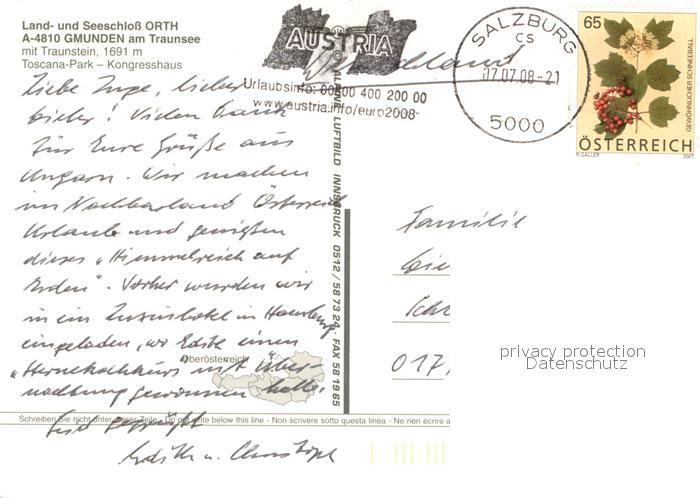 Land- und Seeschloß ORTH
A-4810 GMUNDEN am Traunsee
mit Traunstein, 1691 m
Toscana-Park – Kongresshaus
AUSTRIA
Urlaubsinfo: 00800 400 200 00
www.austria.info/euro2008
SALZBURG
CS
07.07.08-21
5000
65
GEWÖHNLICHER SCHNEEBALL
ÖSTERREICH
A. GALLER
2007
Liebe Inge, lieber
! Vielen Dank
für Eure Grüße aus
Ungarn. Wir machen
im Nachbarland Österreich
Urlaub und genießen
dieses „Himmelreich auf
Erden“. Vorher wurden wir
in ein Luxushotel in Hamburg
eingeladen, wo Edith einen
„Sternekochkurs mit Über-
nachtung gewonnen hatte.
Oberösterreich
Schreiben Sie nicht unter dieser Zeile - Do not write below this line - Non scrivere sotto questa linea - Ne rien écrire a
Edith u. Christoph
ALPINE LUFTBILD INNSBRUCK 0512/58 73 24, FAX 58 19 65
Familie
017
privacy protection
Datenschutz